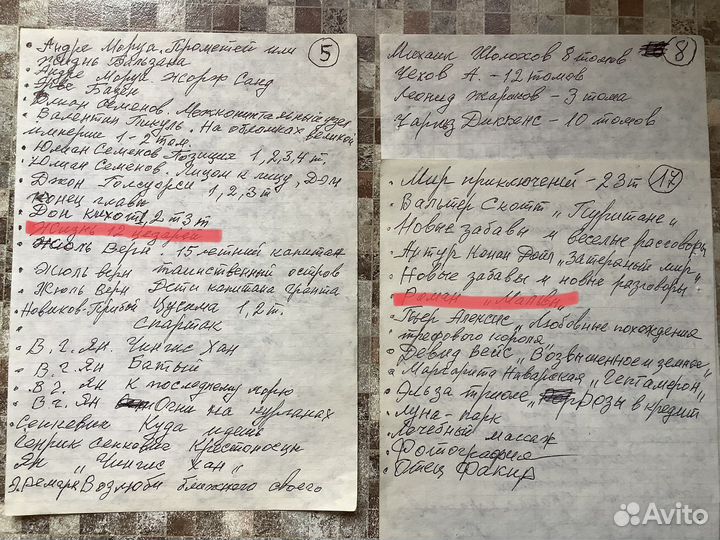 5
• Андре Моруа. Прометей или
Жизнь Бальзака
• Андре Моруа Жорж Санд
• Эрве Базен
• Юлиан Семенов. Межконтинентальный узел
• Валентин Пикуль. На обломках великой
империи 1-2 том.
• Юлиан Семенов Позиция 1,2,3,4 т.
• Юлиан Семенов. Лицом к лицу, Дэм
• Джон Голсуорси 1,2,3 т
Конец главы
• Дон Кихот 1,2 т 3 т
• Жизнь 12 цезарей
• Жюль Верн. 15 летний капитан
• Жюль Верн таинственный остров
• Жюль Верн Дети капитана гранта
• Новиков-Прибой Цусима 1,2 т.
• Спартак
• В.Г. Ян. Чингис Хан
• В.Г. Ян Батый
• В.Г. Ян К последнему морю
• В.Г. Ян Огни на курганах
• Сенкевич Куда идешь
Генрик Сенкевич Крестоносцы
Ян „Чингис Хан„
Э. Ремарк Возлюби ближнего своего
8
Михаил Шолохов 8 томов
Чехов А. - 12 томов
Леонид Жариков - 3 тома
Чарльз Диккенс - 10 томов
17
• Мир приключений - 23 т
• Вальтер Скотт „Пуритане„
• Новые забавы и веселые разговоры
• Артур Конан Дойл „Затерянный мир„
• Новые забавы и новые разговоры
• Роман „Матвей„
• Пьер Алексис „Любовные похождения
трефового короля
• Дэвид Вейс „Возвышенное и земное„
• Маргарита Наварская „Гептамерон„
• Эльза триоле „Розы в кредит
• Луна-парк
• Лечебный массаж
• Фотография
• Отец Факир
Avito